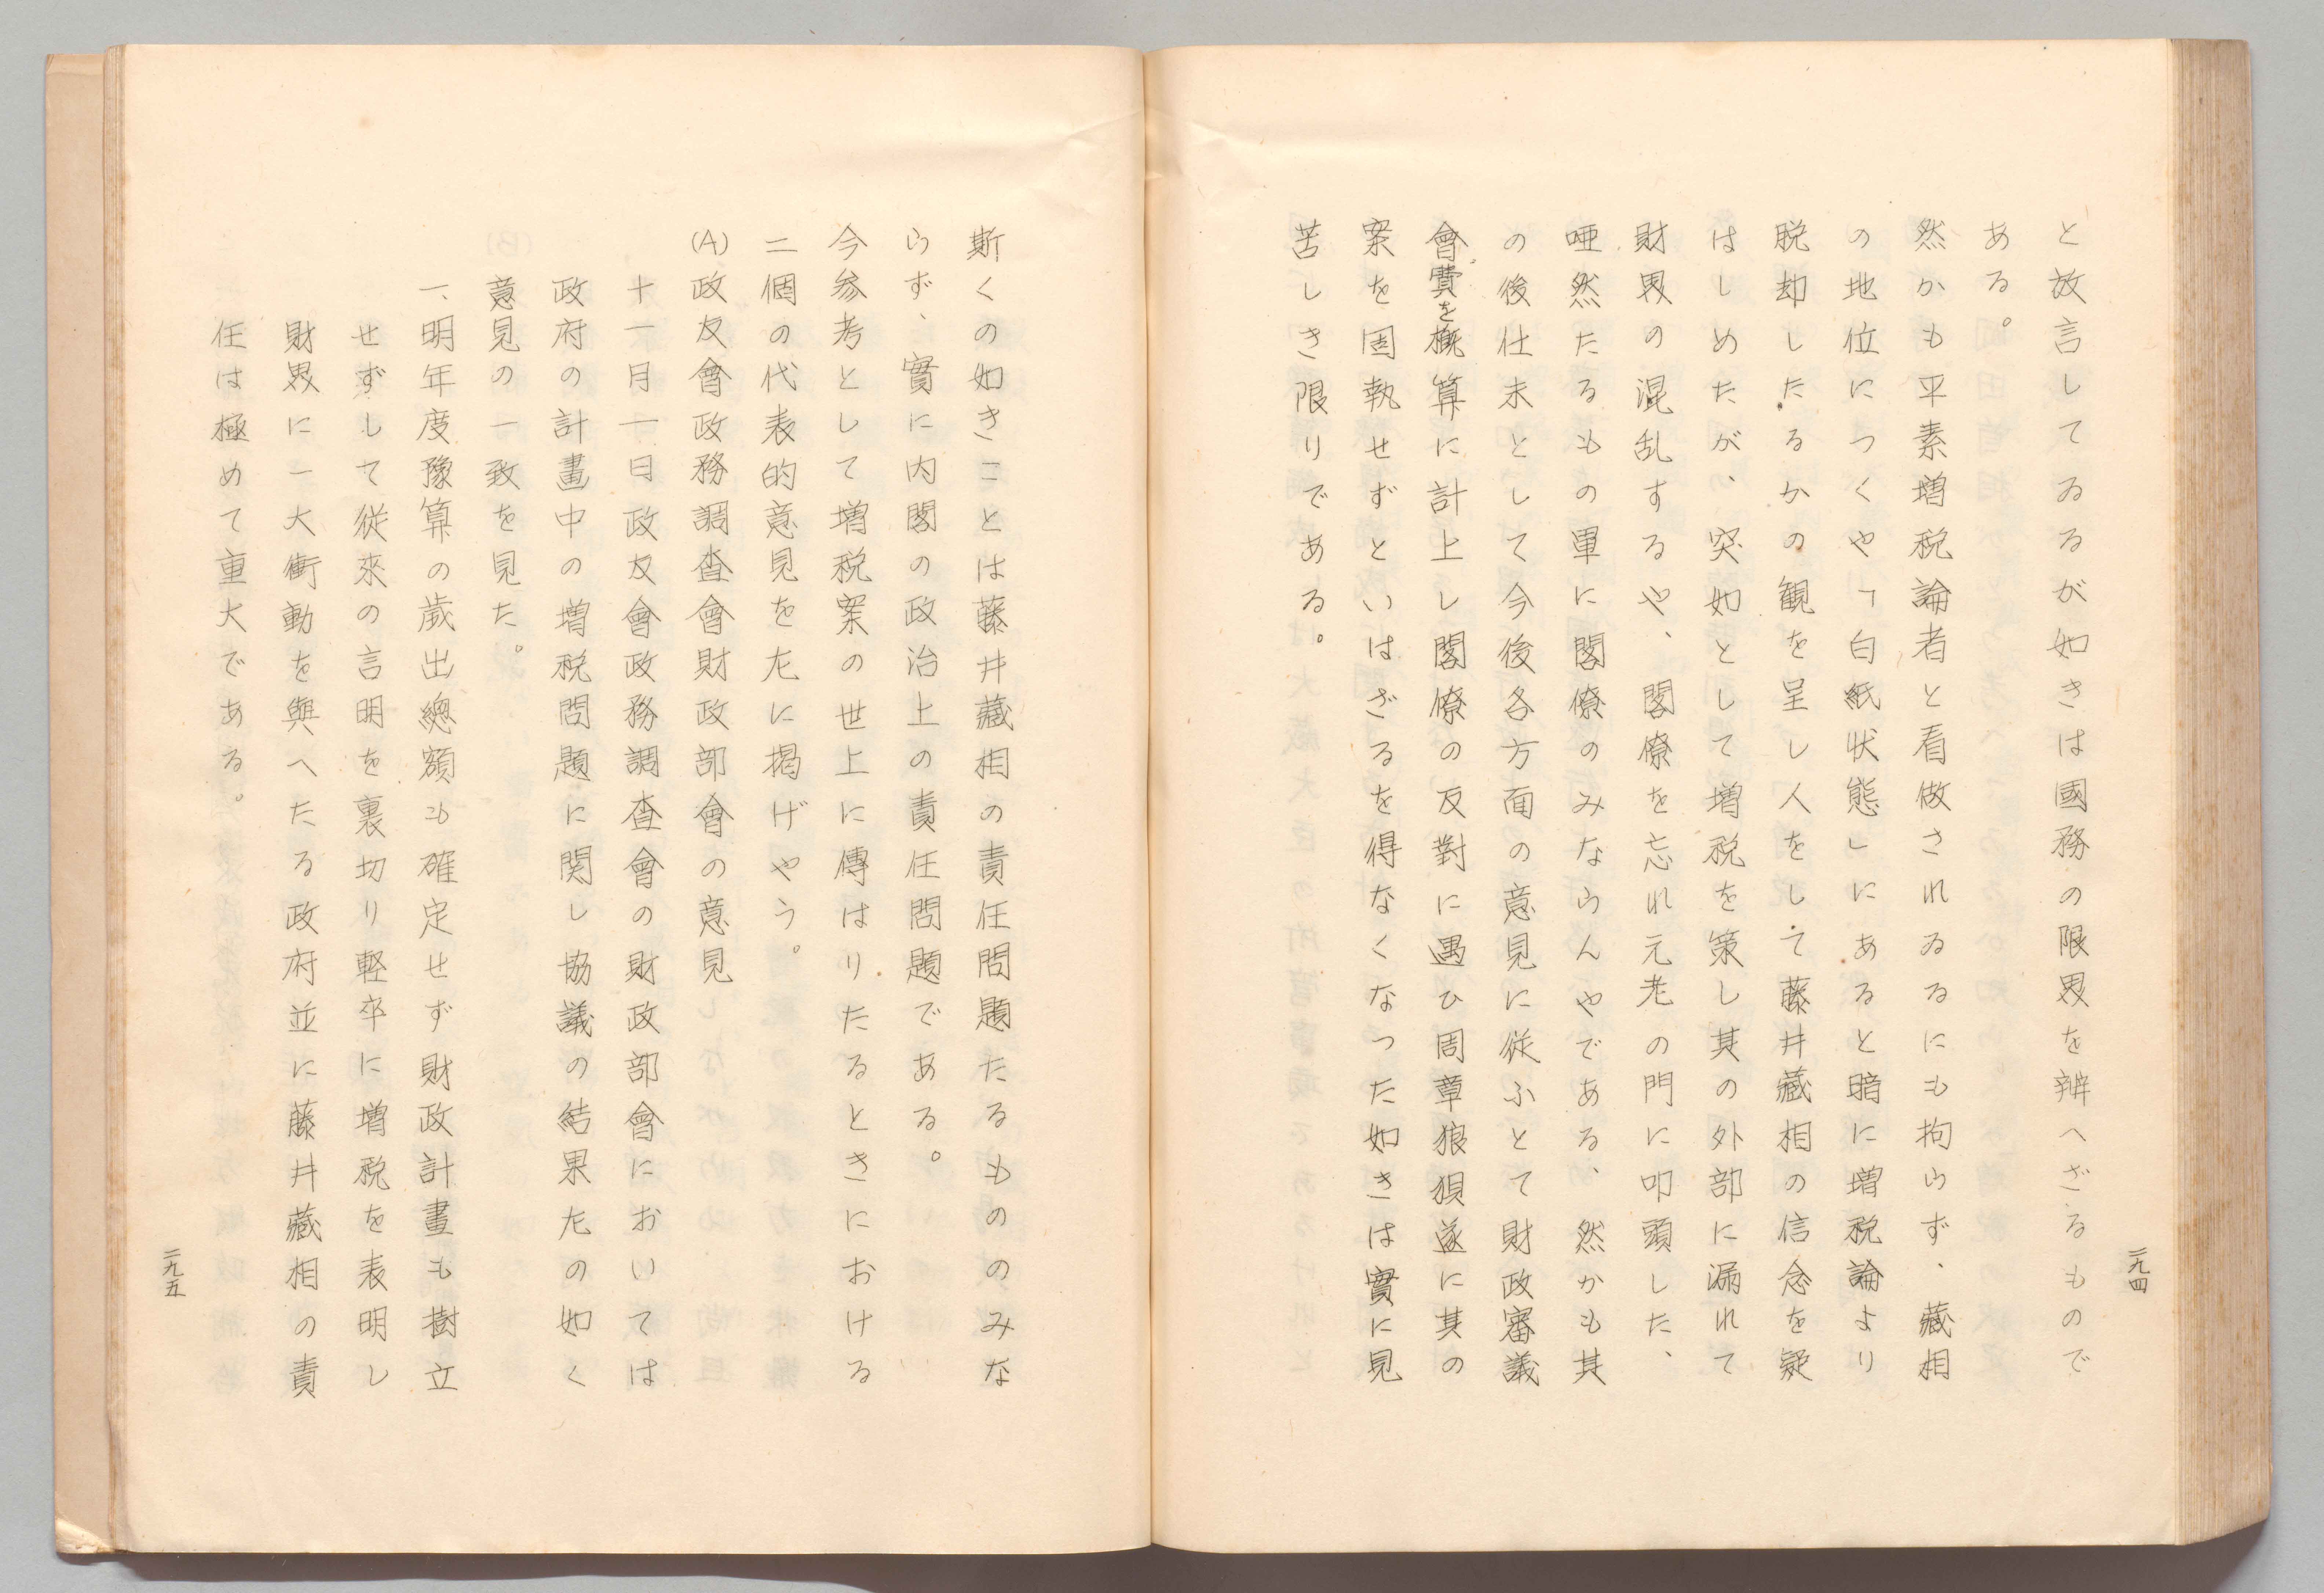 と放言してゐるが如きは國務の限界を辨へざるもので
ある。
然かも平素増税論者と看做されゐるにも拘らず、藏相
の地位につくや「白紙状態」にあると暗に増税論より
脱却したるかの観を呈し人をして藤井藏相の信念を疑
はしめたが、突如として増税を策し其の外部に漏れて
財界の混乱するや、閣僚を忘れ元老の門に叩頭した、
唖然たるもの單に閣僚のみならんやである、然かも其
の後仕末として今後各方面の意見に従ふとて財政審議
會費を概算に計上し閣僚の反對に遇ひ周章狼狽遂に其の
案を固執せずといはざるを得なくなつた如きは實に見
苦しき限りである。
二九四
斯くの如きことは藤井藏相の責任問題たるもののみな
らず、實に内閣の政治上の責任問題である。
今参考として増税案の世上に傳はりたるときにおける
二個の代表的意見を左に掲げやう。
(A)政友會政務調査會財政部會の意見
十一月一日政友會政務調査會の財政部會においては
政府の計畫中の増税問題に関し協議の結果左の如く
意見の一致を見た。
一、明年度豫算の歳出總額も確定せず財政計畫も樹立
せずして従來の言明を裏切り軽卒に増税を表明し
財界に一大衝動を與へたる政府並に藤井藏相の責
任は極めて重大である。
二九五